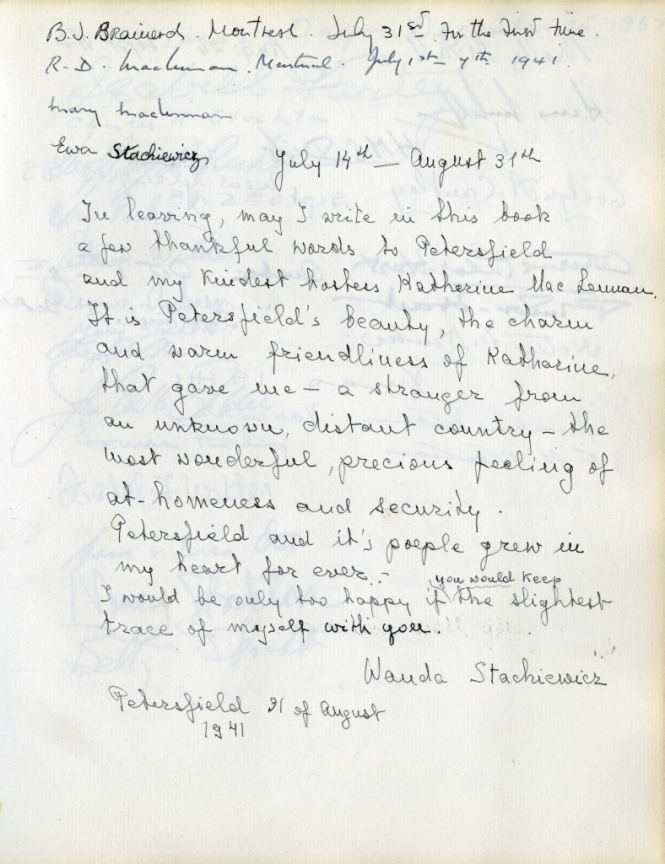 B.J. Brainerd. Montreal. July 31st. For the first time.
R.D. MacLennan. Montreal. July 1st - 7th 1941.
Mary MacLennan
Ewa Stachiewicz July 14th — August 31th
In leaving, may I write in this book
a few thankful words to Petersfield
and my kindest hostess Katherine Mac Lennan.
It is Petersfield's beauty, the charm
and warm friendliness of Katharine,
that gave me – a stranger from
an unknown, distant country – the
most wonderful, precious feeling of
at-homeness and security.
Petersfield and it's poeple grew in
my heart for ever. –
you would keep
I would be only too happy if the slightest
trace of myself with you.
Wanda Stachiewicz
Petersfield 31 of August
1941